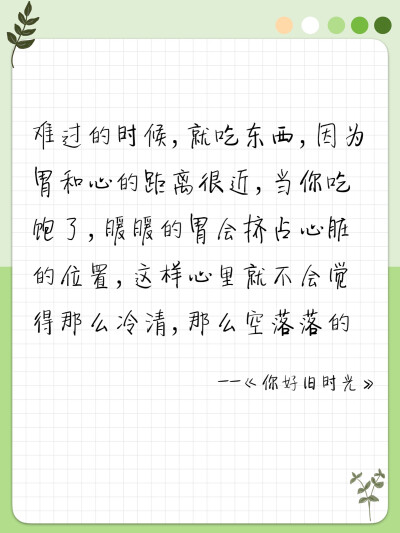 难过的时候,就吃东西,因为
胃和心的距离很近,当你吃
饱了,暖暖的胃会挤占心脏
的位置,这样心里就不会觉
得那么冷清,那么空落落的
--《你好旧时光》